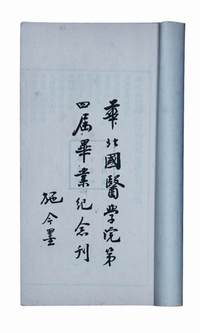 華北國醫學院第
四届畢業紀念刊
施今墨